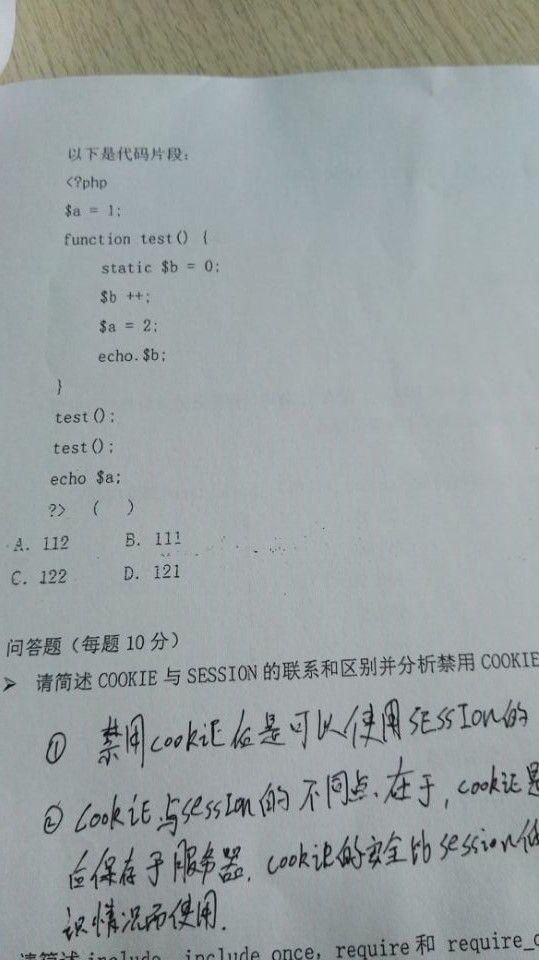 以下是代码片段:
<?php
$a = 1;
function test() {
static $b = 0;
$b ++;
$a = 2;
echo.$b;
}
test();
test();
echo $a;
?> ( )
A. 112 B. 111
C. 122 D. 121
问答题（每题 10 分）
➢ 请简述 COOKIE 与 SESSION 的联系和区别并分析禁用 COOKIE
① 禁用cookiE 是可以使用SESSIon的
② CookiE与sessIon的不同点、在于, cookiE是
保存于服务器, cookie的安全比session
识情况而使用.
include, include_once, require 和 require_